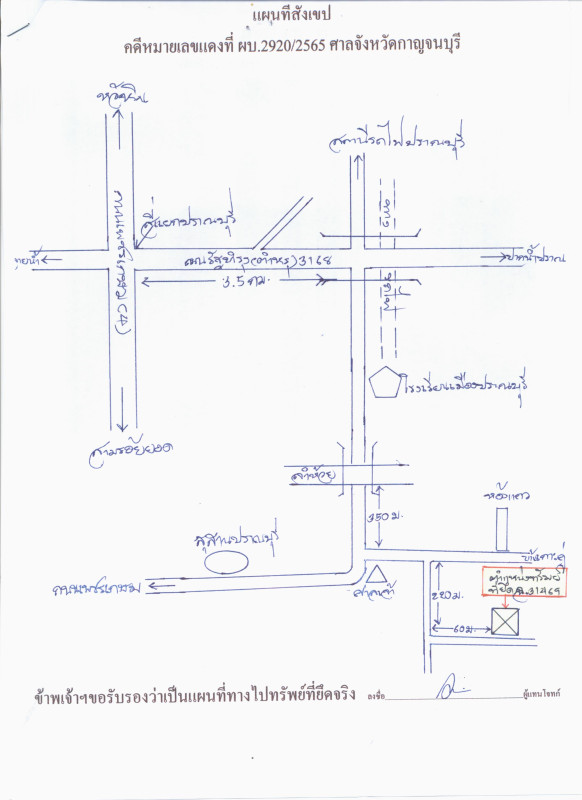 แผนที่สังเขป
คดีหมายเลขแดงที่ ผบ.2920/2565 ศาลจังหวัดกาญจนบุรี
หัวหิน
สถานีรถไฟปราณบุรี
ถนนเพชรเกษม (4)
สี่แยกปราณบุรี
ถนนรัฐบำรุง 3168
3.5 กม.
ปากน้ำปราณ
โรงเรียนเมืองปราณบุรี
สามร้อยยอด
ลำห้วย
ห้องแถว
350 ม.
สุสานปราณบุรี
ถนนเพชรเกษม
ศาลเจ้า
220 ม.
ตำแหน่งทรัพย์
ที่ยึด ฉ.31469
60 ม.
ข้าพเจ้าฯขอรับรองว่าเป็นแผนที่ทางไปทรัพย์ที่ยึดจริง ลงชื่อ ผู้แทนโจทก์